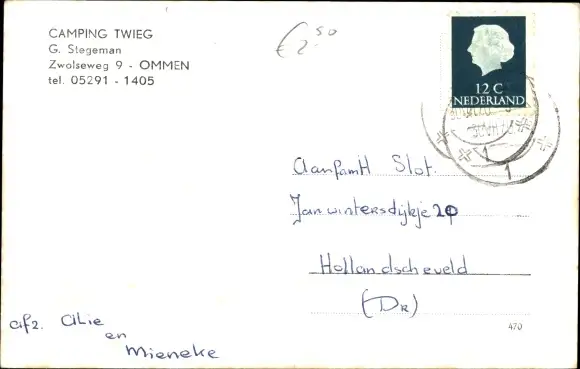 CAMPING TWIEG
G. Stegeman
Zwolseweg 9 - OMMEN
tel. 05291 - 1405
€ 2.50
12 C
NEDERLAND
1
1
Aan fam H Slot.
Jan wintersdijkje 20
Hollandscheveld
(DR)
470
afz. Alie
en
Mieneke